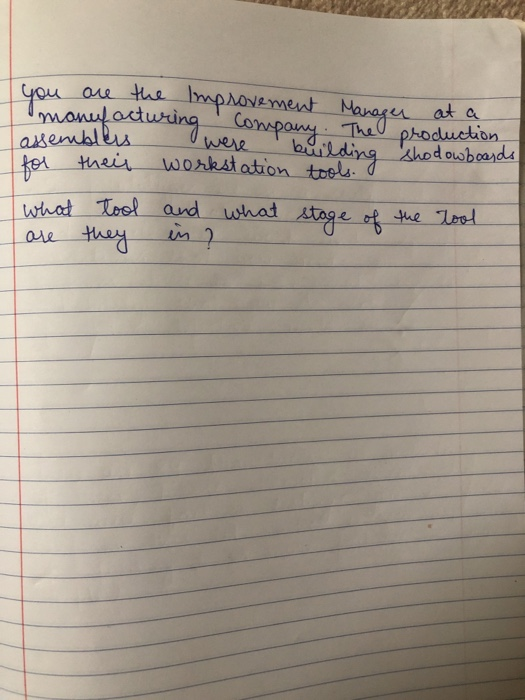 you are the Improvement Manager at a
manufacturing Company. The production
assemblers were building shadowboards
for their workstation tools.
what Tool and what stage of the Tool
are they in ?